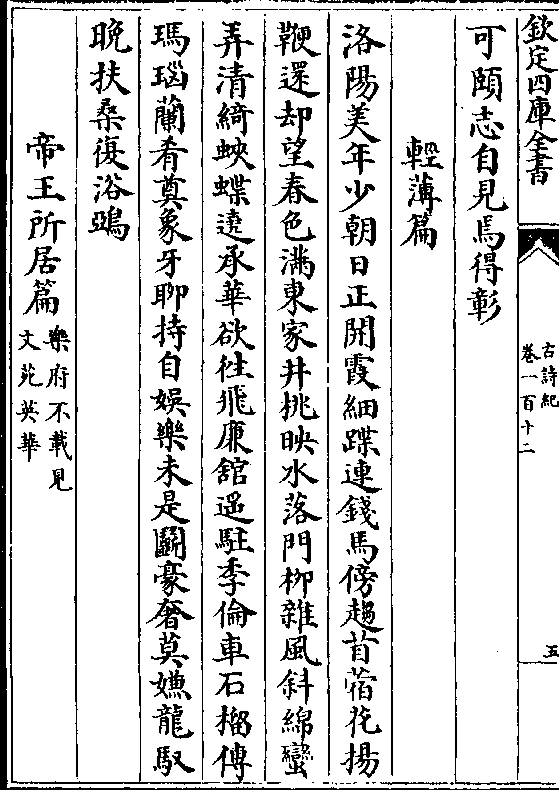 欽定四庫全書
古詩紀
卷一百十二
五
可頤志自見焉得彰
輕薄篇
洛陽美年少朝日正開霞細蹀連錢馬傍趨苜蓿花揚
鞭還却望春色滿東家井桃映水落門栁雜風斜綿蠻
弄清綺蛺蝶遶承華欲往飛廉舘遥駐季倫車石榴傳
瑪瑙蘭肴奠象牙聊持自娛樂未是鬭豪奢莫嫌龍馭
晚扶桑復浴鴉
帝王所居篇
樂府不載見
文苑英華